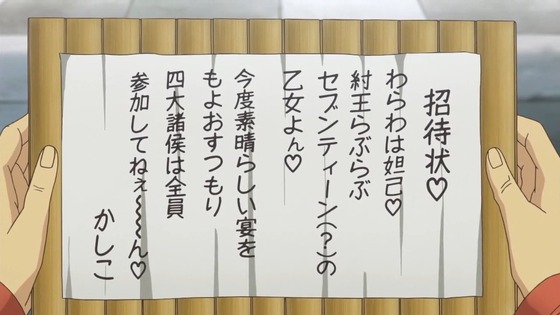 招待状♡
わらわは妲己♡
紂王らぶらぶ
セブンティーン(?)の
乙女よん♡
今度素晴らしい宴を
もよおすつもり
四大諸侯は全員
参加してねぇ～～ん♡
かしこ